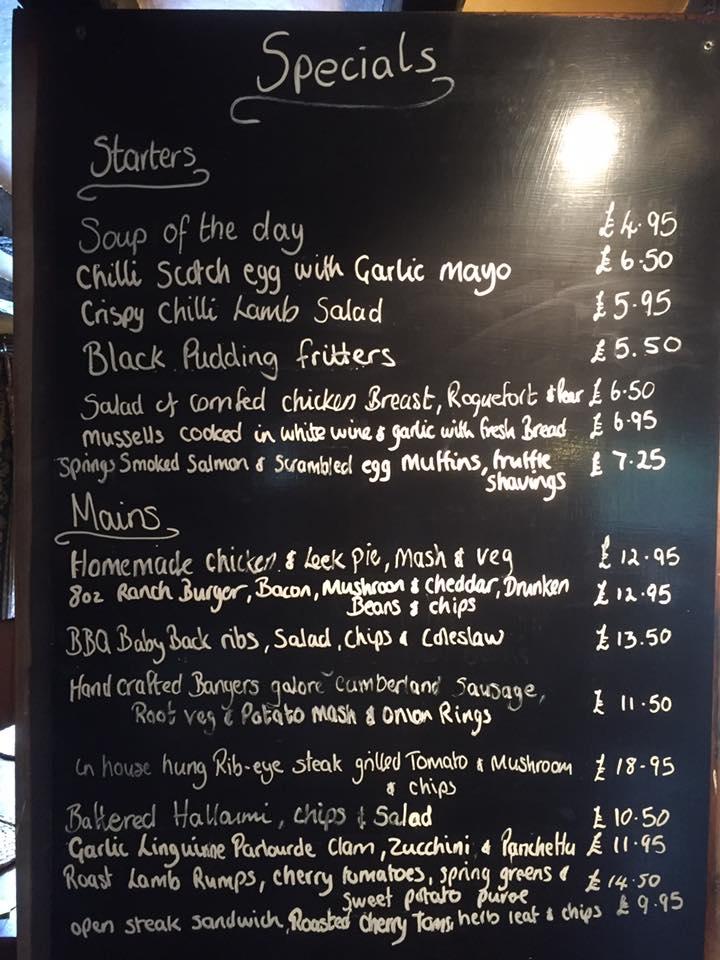 Specials
Starters
Soup of the day £4.95
Chilli Scotch egg with Garlic mayo £6.50
Crispy Chilli Lamb Salad £5.95
Black Pudding fritters £5.50
Salad of cornfed chicken Breast, Roquefort & Pear £6.50
mussells cooked in white wine & garlic with fresh Bread £6.95
Springs Smoked Salmon & Scrambled egg Muffins, truffle £7.25
shavings
Mains
Homemade chicken & Leek pie, Mash & veg £12.95
8oz Ranch Burger, Bacon, Mushroon & cheddar, Drunken £12.95
Beans & chips
BBQ Baby Back ribs, Salad, Chips & Coleslaw £13.50
Hand Crafted Bangers galore cumberland Sausage,
Root veg & Potato mash & Onion Rings £11.50
in house hung Rib-eye steak grilled Tomato & Mushroom £18.95
& chips
Battered Halloumi, chips & Salad £10.50
Garlic Linguinne Parlourde Clam, Zucchini & Panchetta £11.95
Roast Lamb Rumps, cherry tomatoes, spring greens & £14.50
sweet potato puree
open steak sandwich, Roasted Cherry Toms, herb leaf & chips £9.95